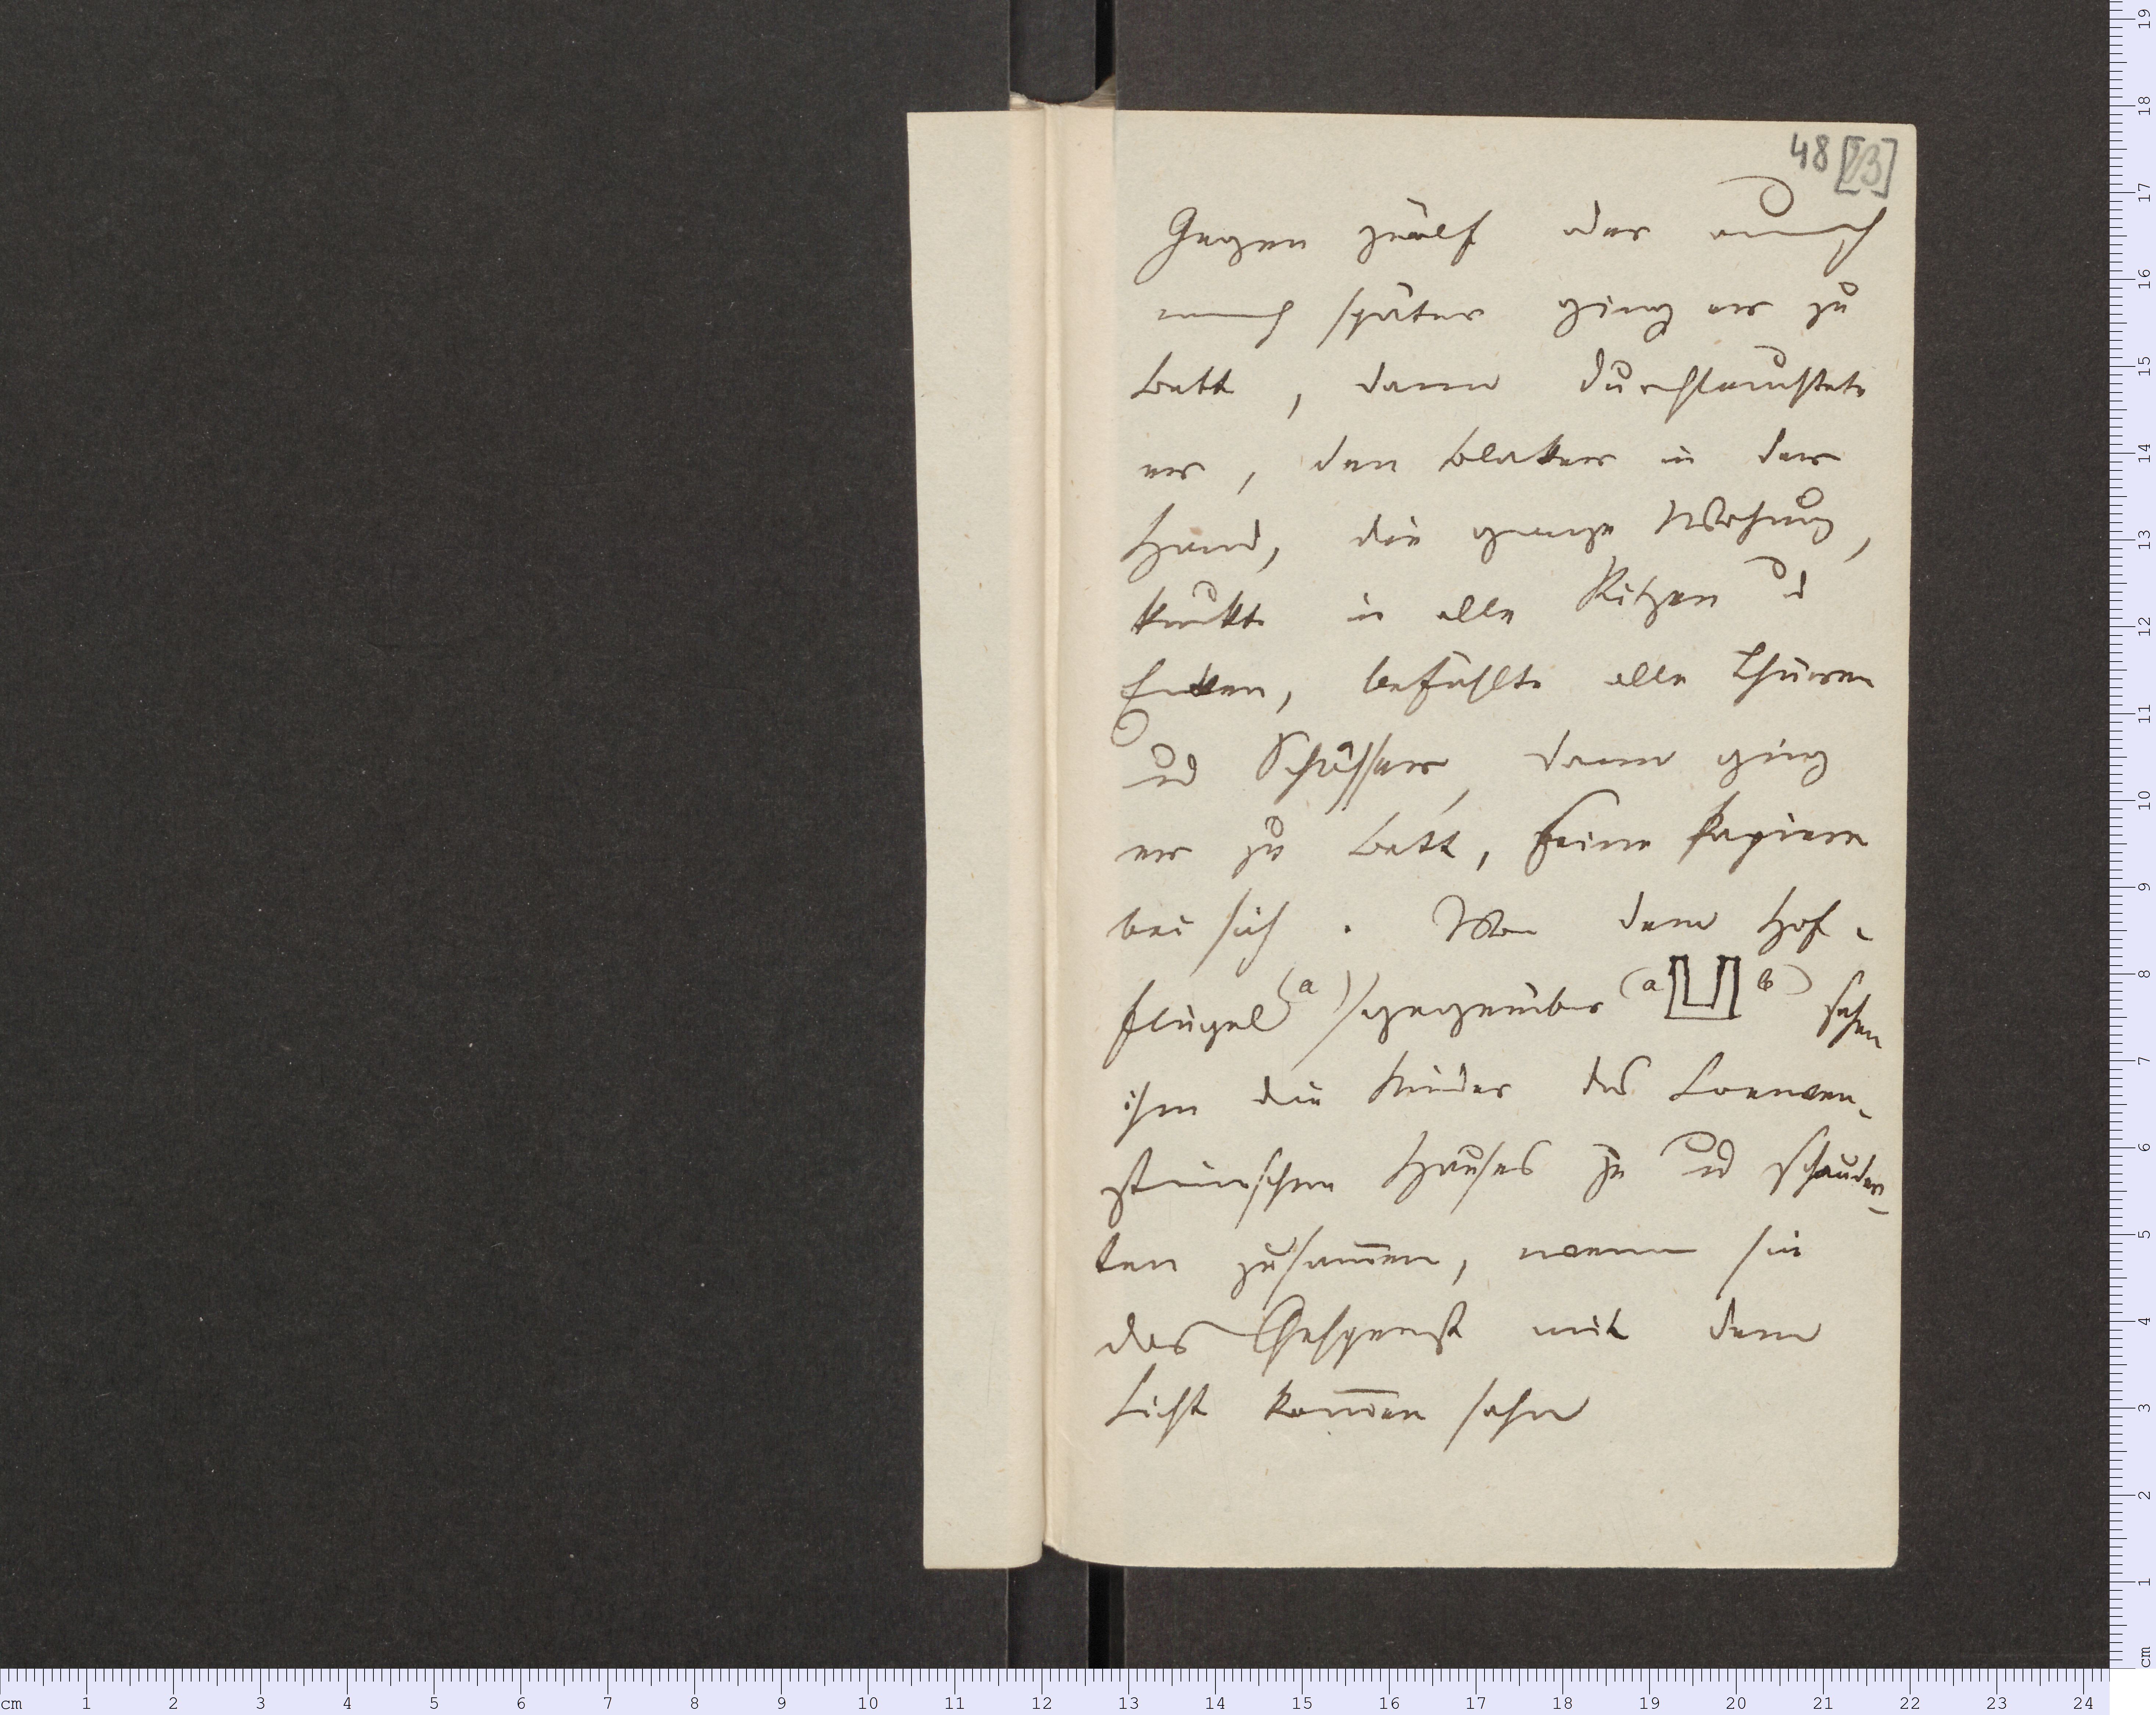 48 [23]
Gegen zwölf oder auch
noch später ging er zu
Bett, dann durchleuchtete
er, den Blaker in der
Hand, die ganze Wohnung,
kuckte in alle Ritzen ud
Ecken, befühlte alle Thüren
und Schlösser, dann ging
er zu Bett, seine Papiere
bei sich. Von dem Hof-
flügel (a) gegenüber (a b) sahen
ihm die Kinder des Loewen-
steinschen Hauses zu und schauder-
ten zusammen, wenn sie
das Gespenst mit dem
Licht kommen sahn